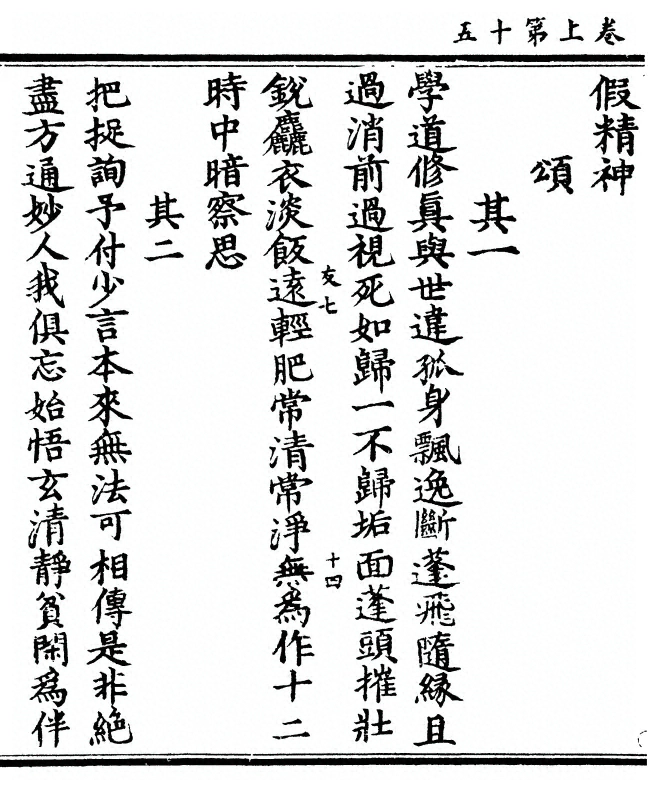 卷上第十五
假精神
頌
其一
學道修眞與世違孤身飄逸斷蓬飛隨縁且
過消前過視死如歸一不歸垢面蓬頭摧壯
銳麤衣淡飯遠輕肥常清常淨無爲作十二
友七
十四
時中暗察思
其二
把捉詢予付少言本來無法可相傳是非絶
盡方通妙人我俱忘始悟玄清靜貧閑爲伴